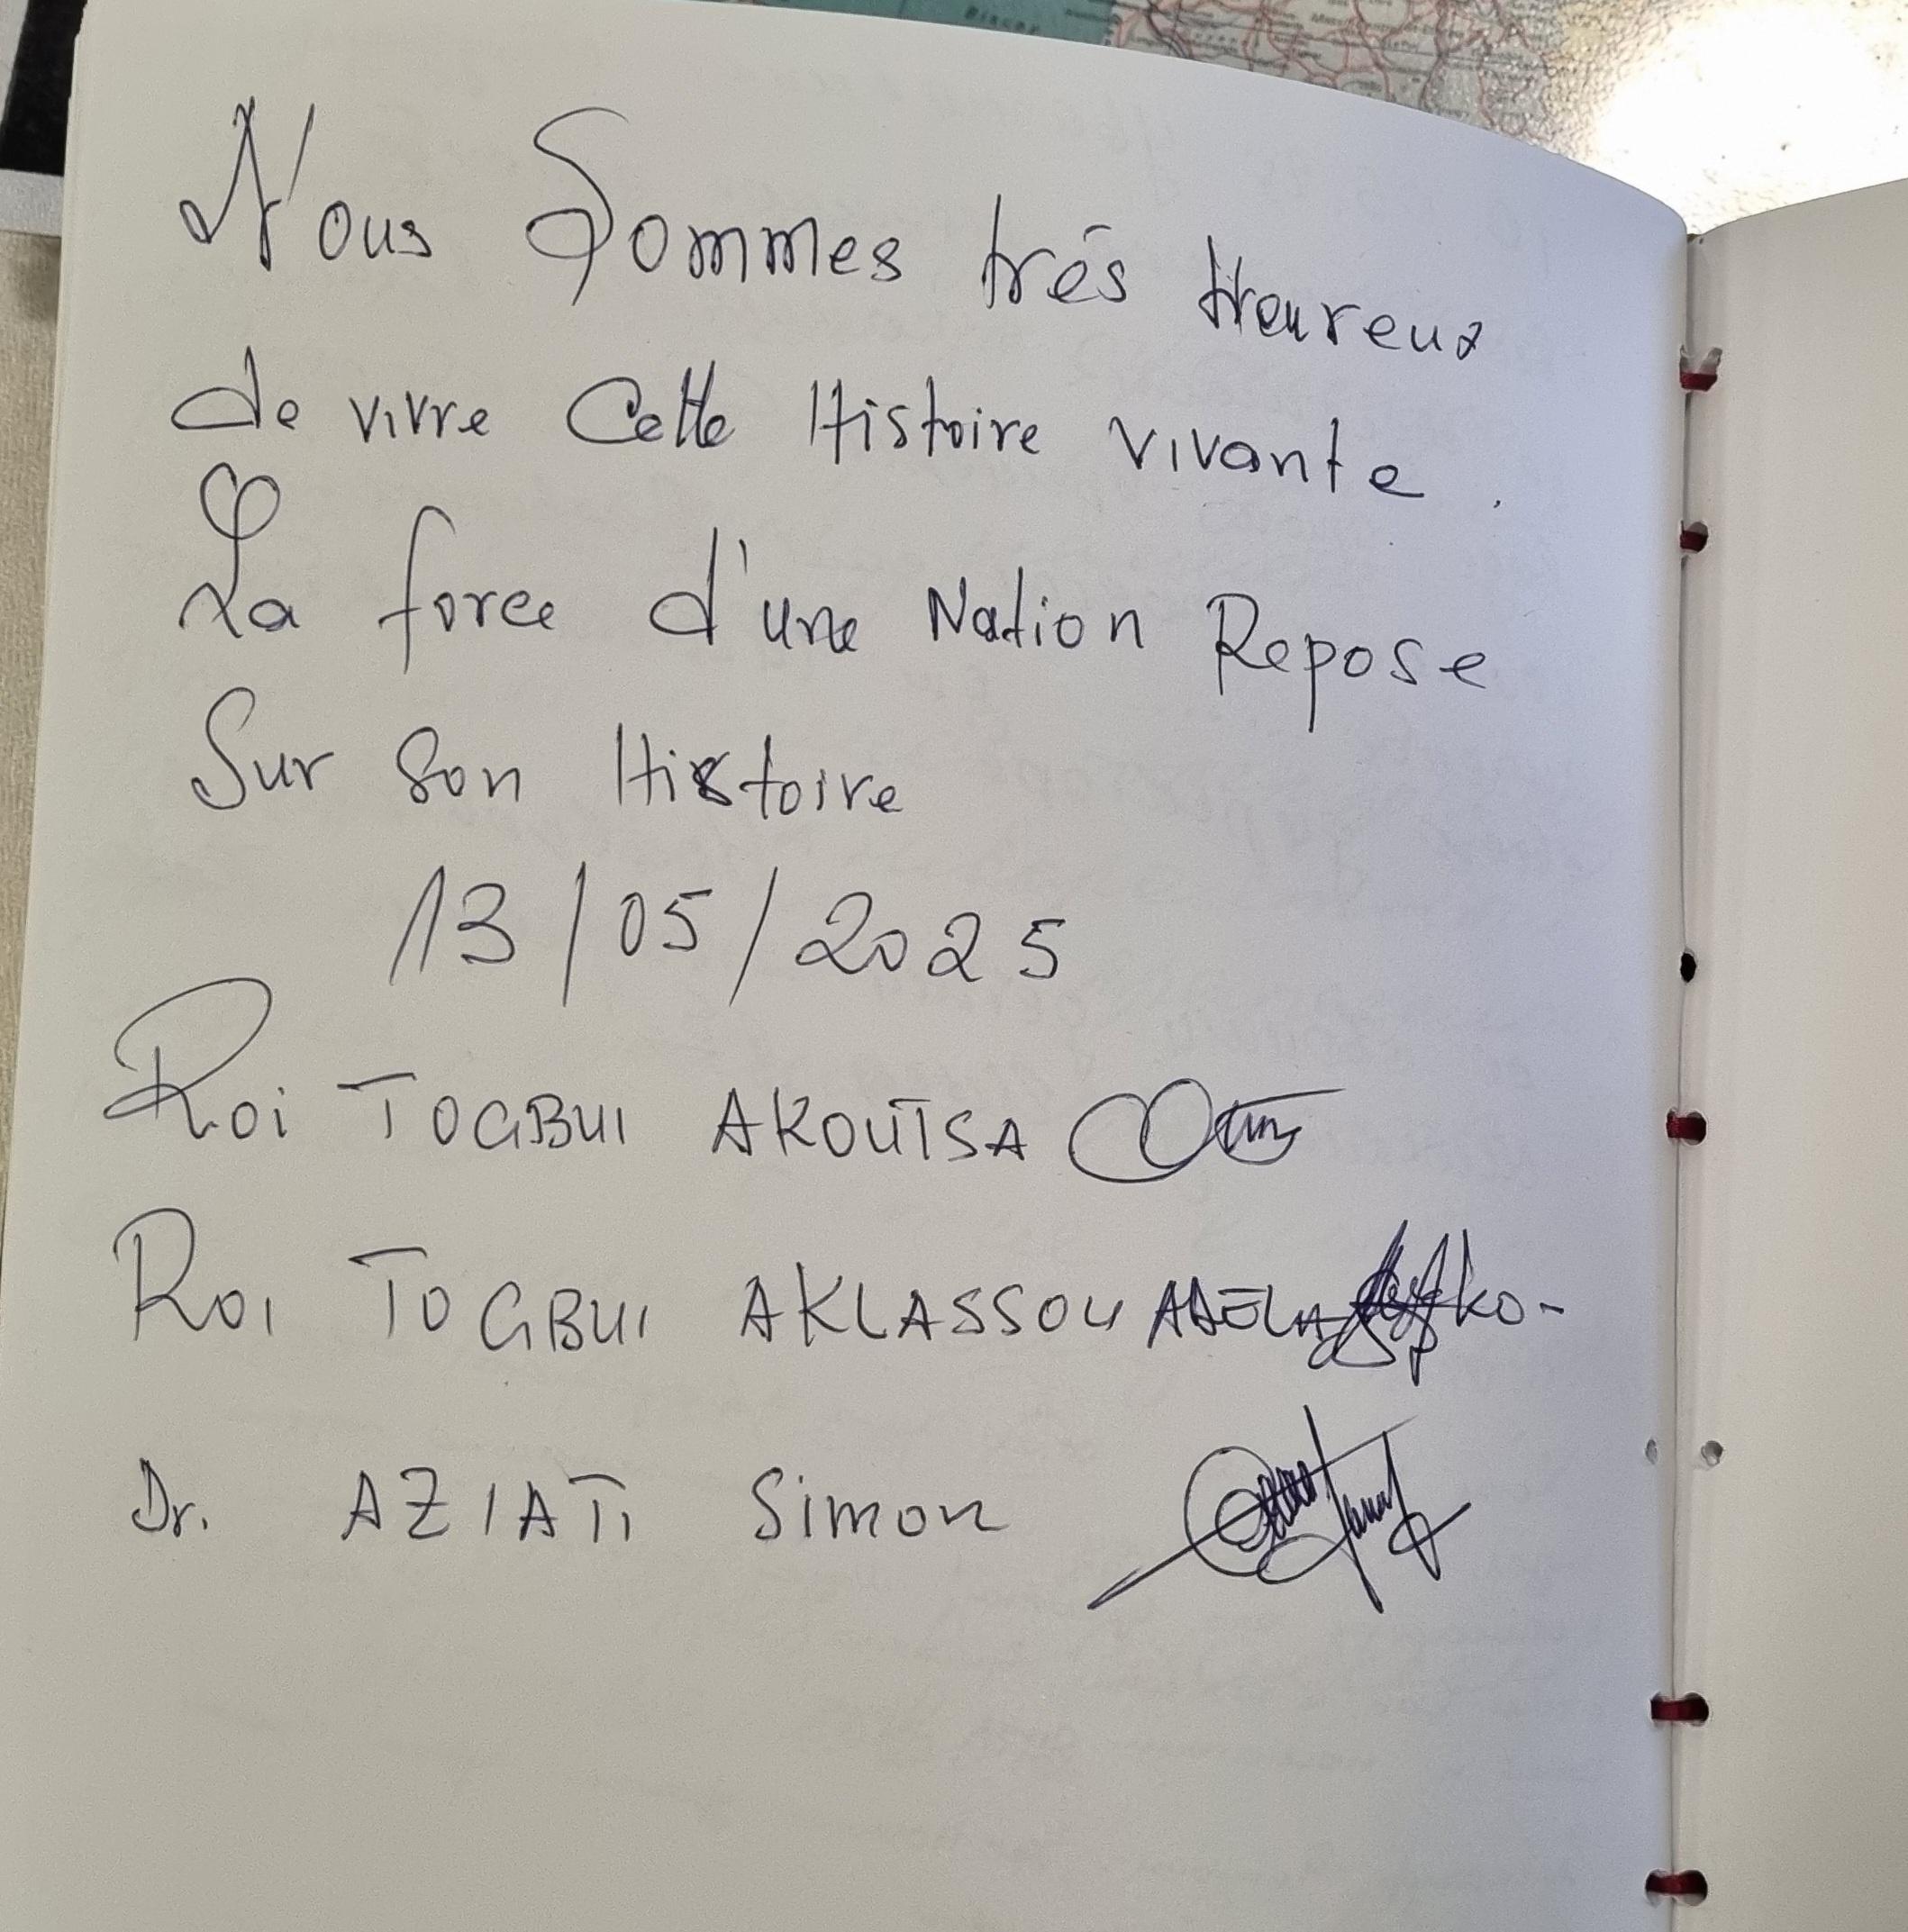 Nous Sommes trés Heureux
de vivre Cette Histoire vivante.
La force d'une Nation Repose
Sur Son Histoire
13/05/2025
Roi TOGBUI AKOUTSA
ROI TOGBUI AKLASSOU ADELA
Dr. AZIATI Simon